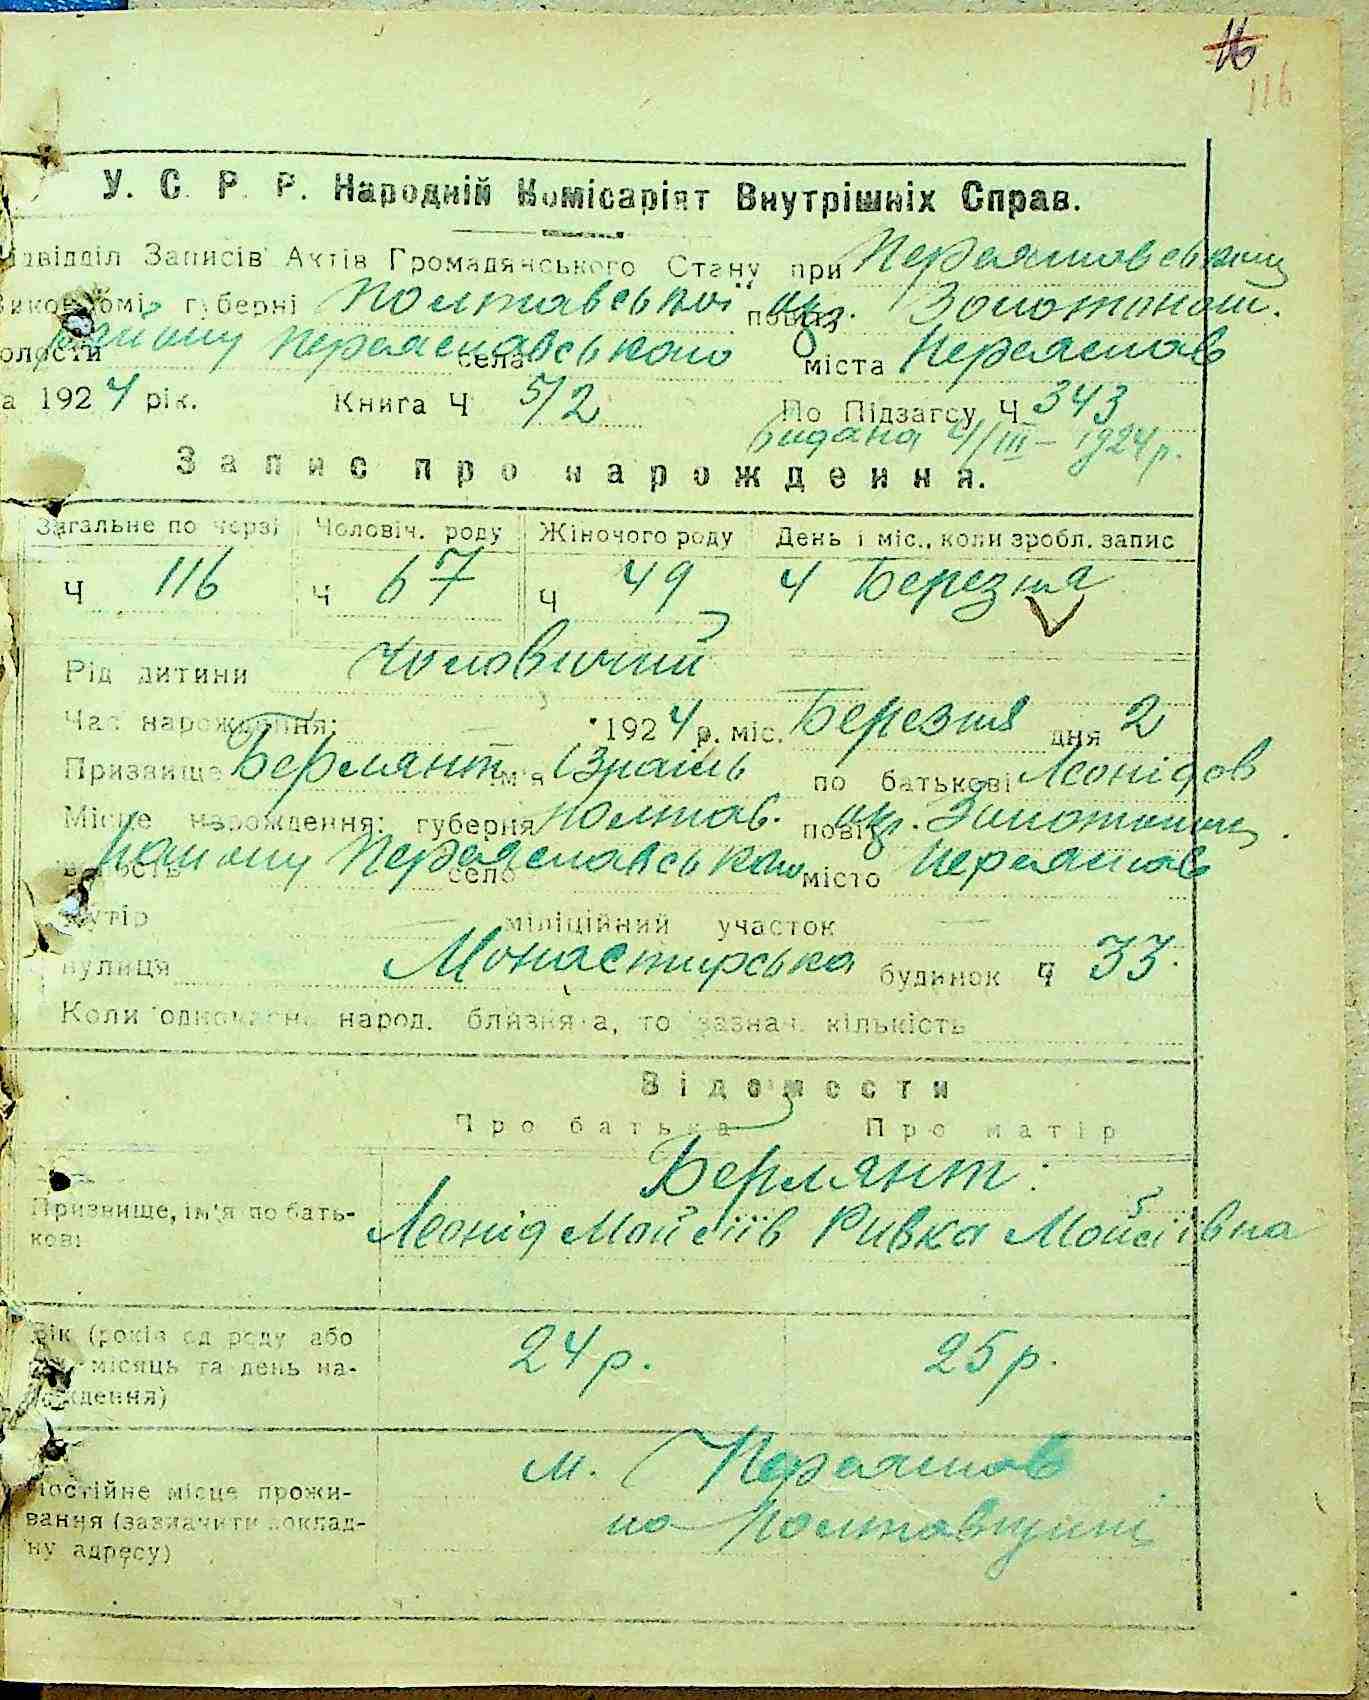 116
У. С. Р. Р. Народній Комісаріят Внутрішніх Справ.
Підвідділ Записів Актів Громадянського Стану при Переяславськім
Виконкомі губерні Полтавської повіт. окр. Золотонош.
волости району Переяславського села міста Переяслав
за 1924 рік. Книга Ч 5/2 По Підзагсу Ч 343
видана 4/III – 1924 р.
Запис про народження.
Загальне по черзі Чоловіч. роду Жіночого роду День і міс., коли зробл. запис
Ч 116 Ч 67 Ч 49 4 Березня
Рід дитини Чоловичий
Час народження: 1924 р. міс. Березня дня 2
Призвище Берлянт ім'я Ізраїль по батькові Леонідов
Місце народження: губерня Полтав. повіт окр. Золотонош.
волость району Переяславського село місто Переяслав
хутір — міліційний участок —
вулиця Монастирська будинок Ч 33.
Коли одночасно народ. близнята, то зазнач. кількість
Відомости
Про батька Про матір
Берлянт.
Призвище, ім'я по бать-
кові
Леонід Мойсіїв Ривка Мойсіївна
Вік (років од роду або
рік, місяць та день на-
родження)
24 р. 25 р.
Постійне місце прожи-
вання (зазначити доклад-
ну адресу)
м. Переяслав
на Полтавщині